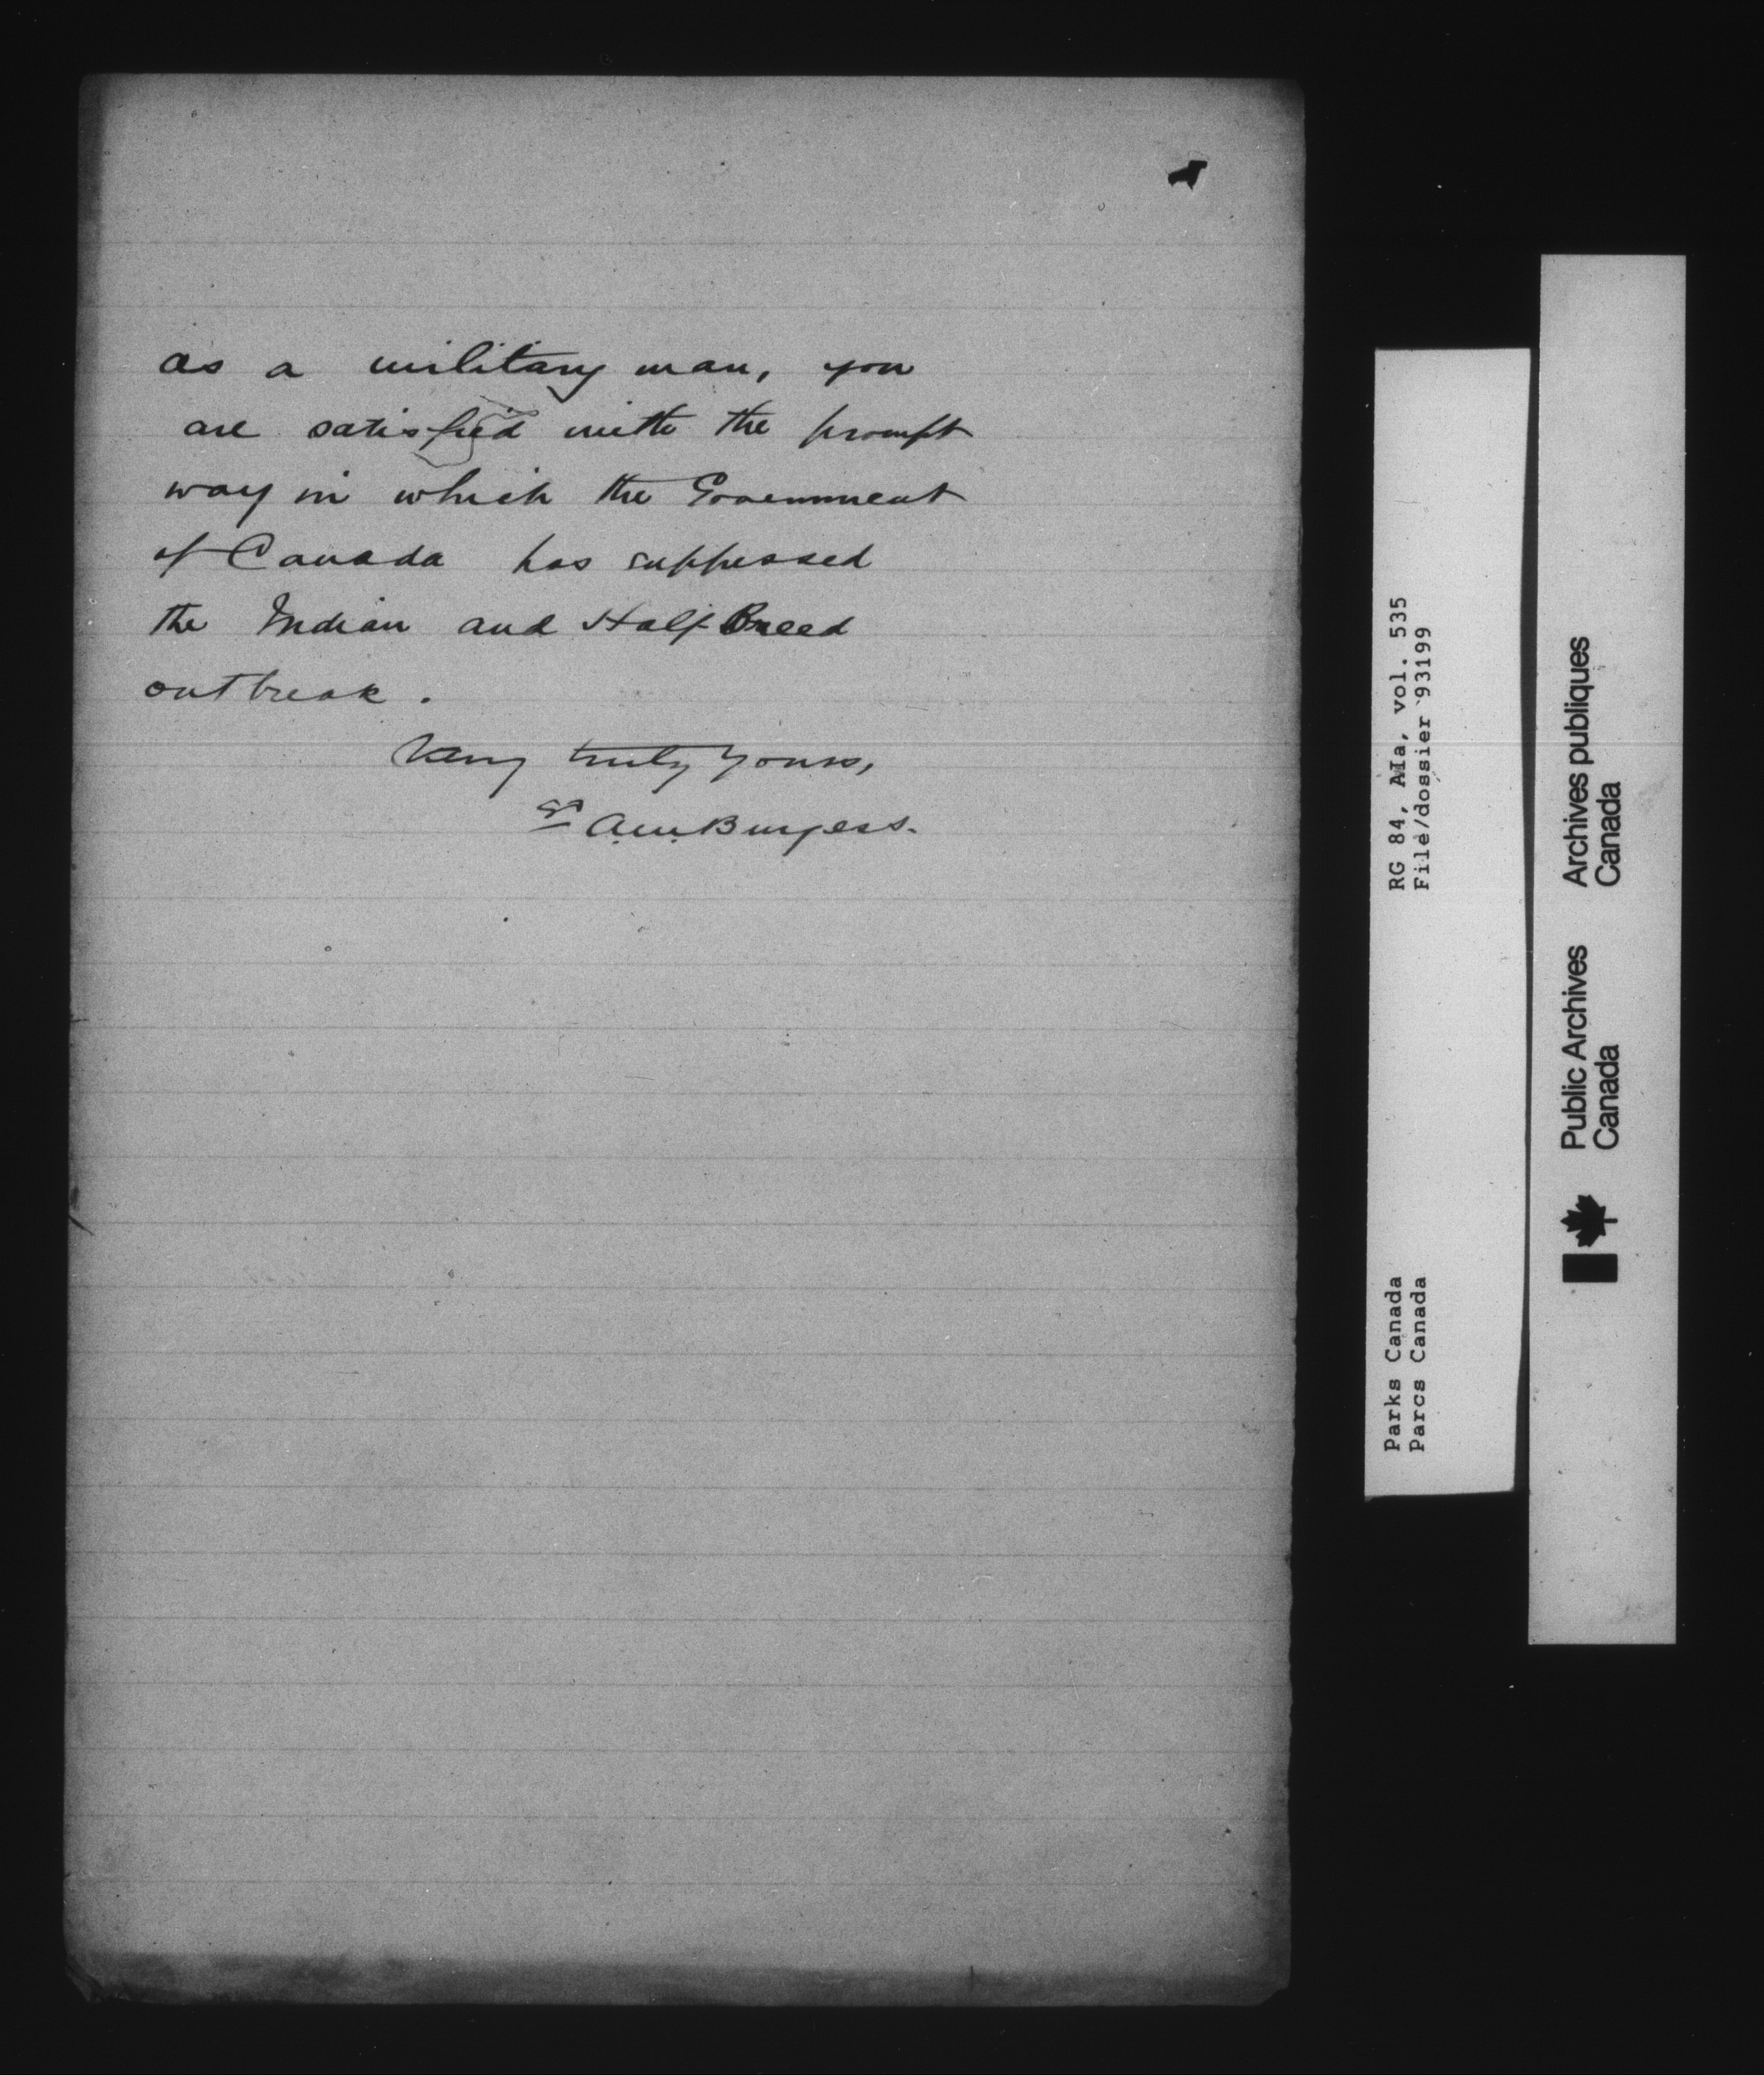 as a military man, you
are satisfied with the prompt
way in which the Government
of Canada has suppressed
the Indian and Half Breed
outbreak.
Very truly yours,
A.M. Burgess.
RG 84, A1a, vol. 535
File/dossier 93199
Parks Canada
Parcs Canada
Public Archives Canada
Archives publiques Canada